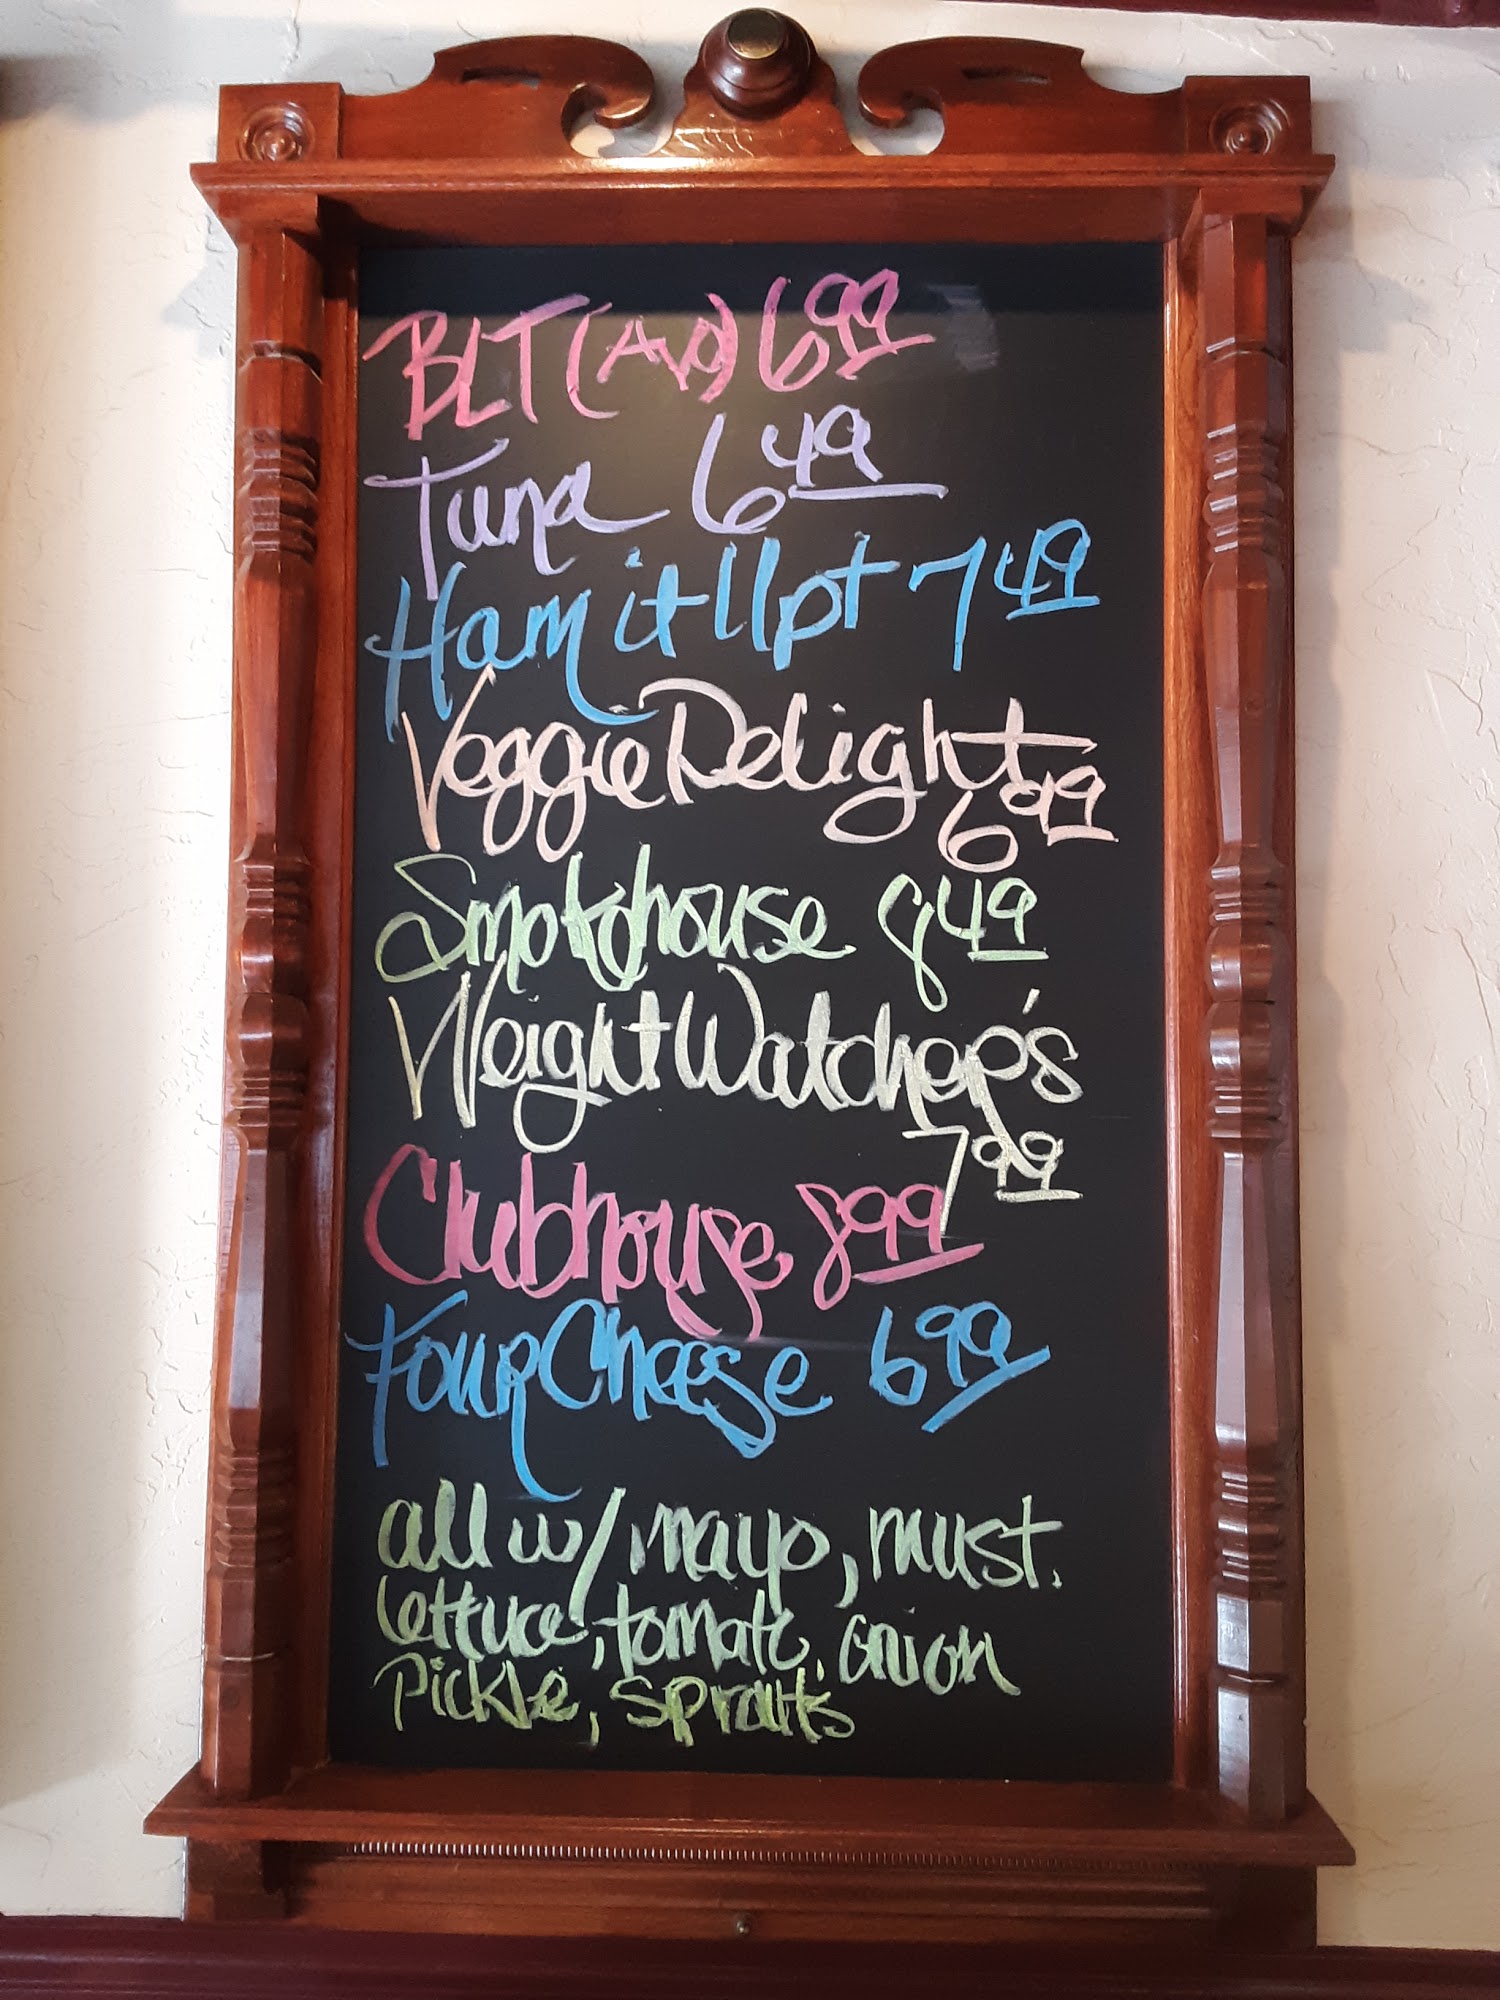 BLT (Avo) 6 99
Tuna 6 49
Ham it Up! 7 49
Veggie Delight
6 99
Smokehouse 8 49
Weight Watcher's
7 99
Clubhouse 8 99
Four Cheese 6 99
all w/ mayo, must.
lettuce, tomato, onion
Pickle, sprouts